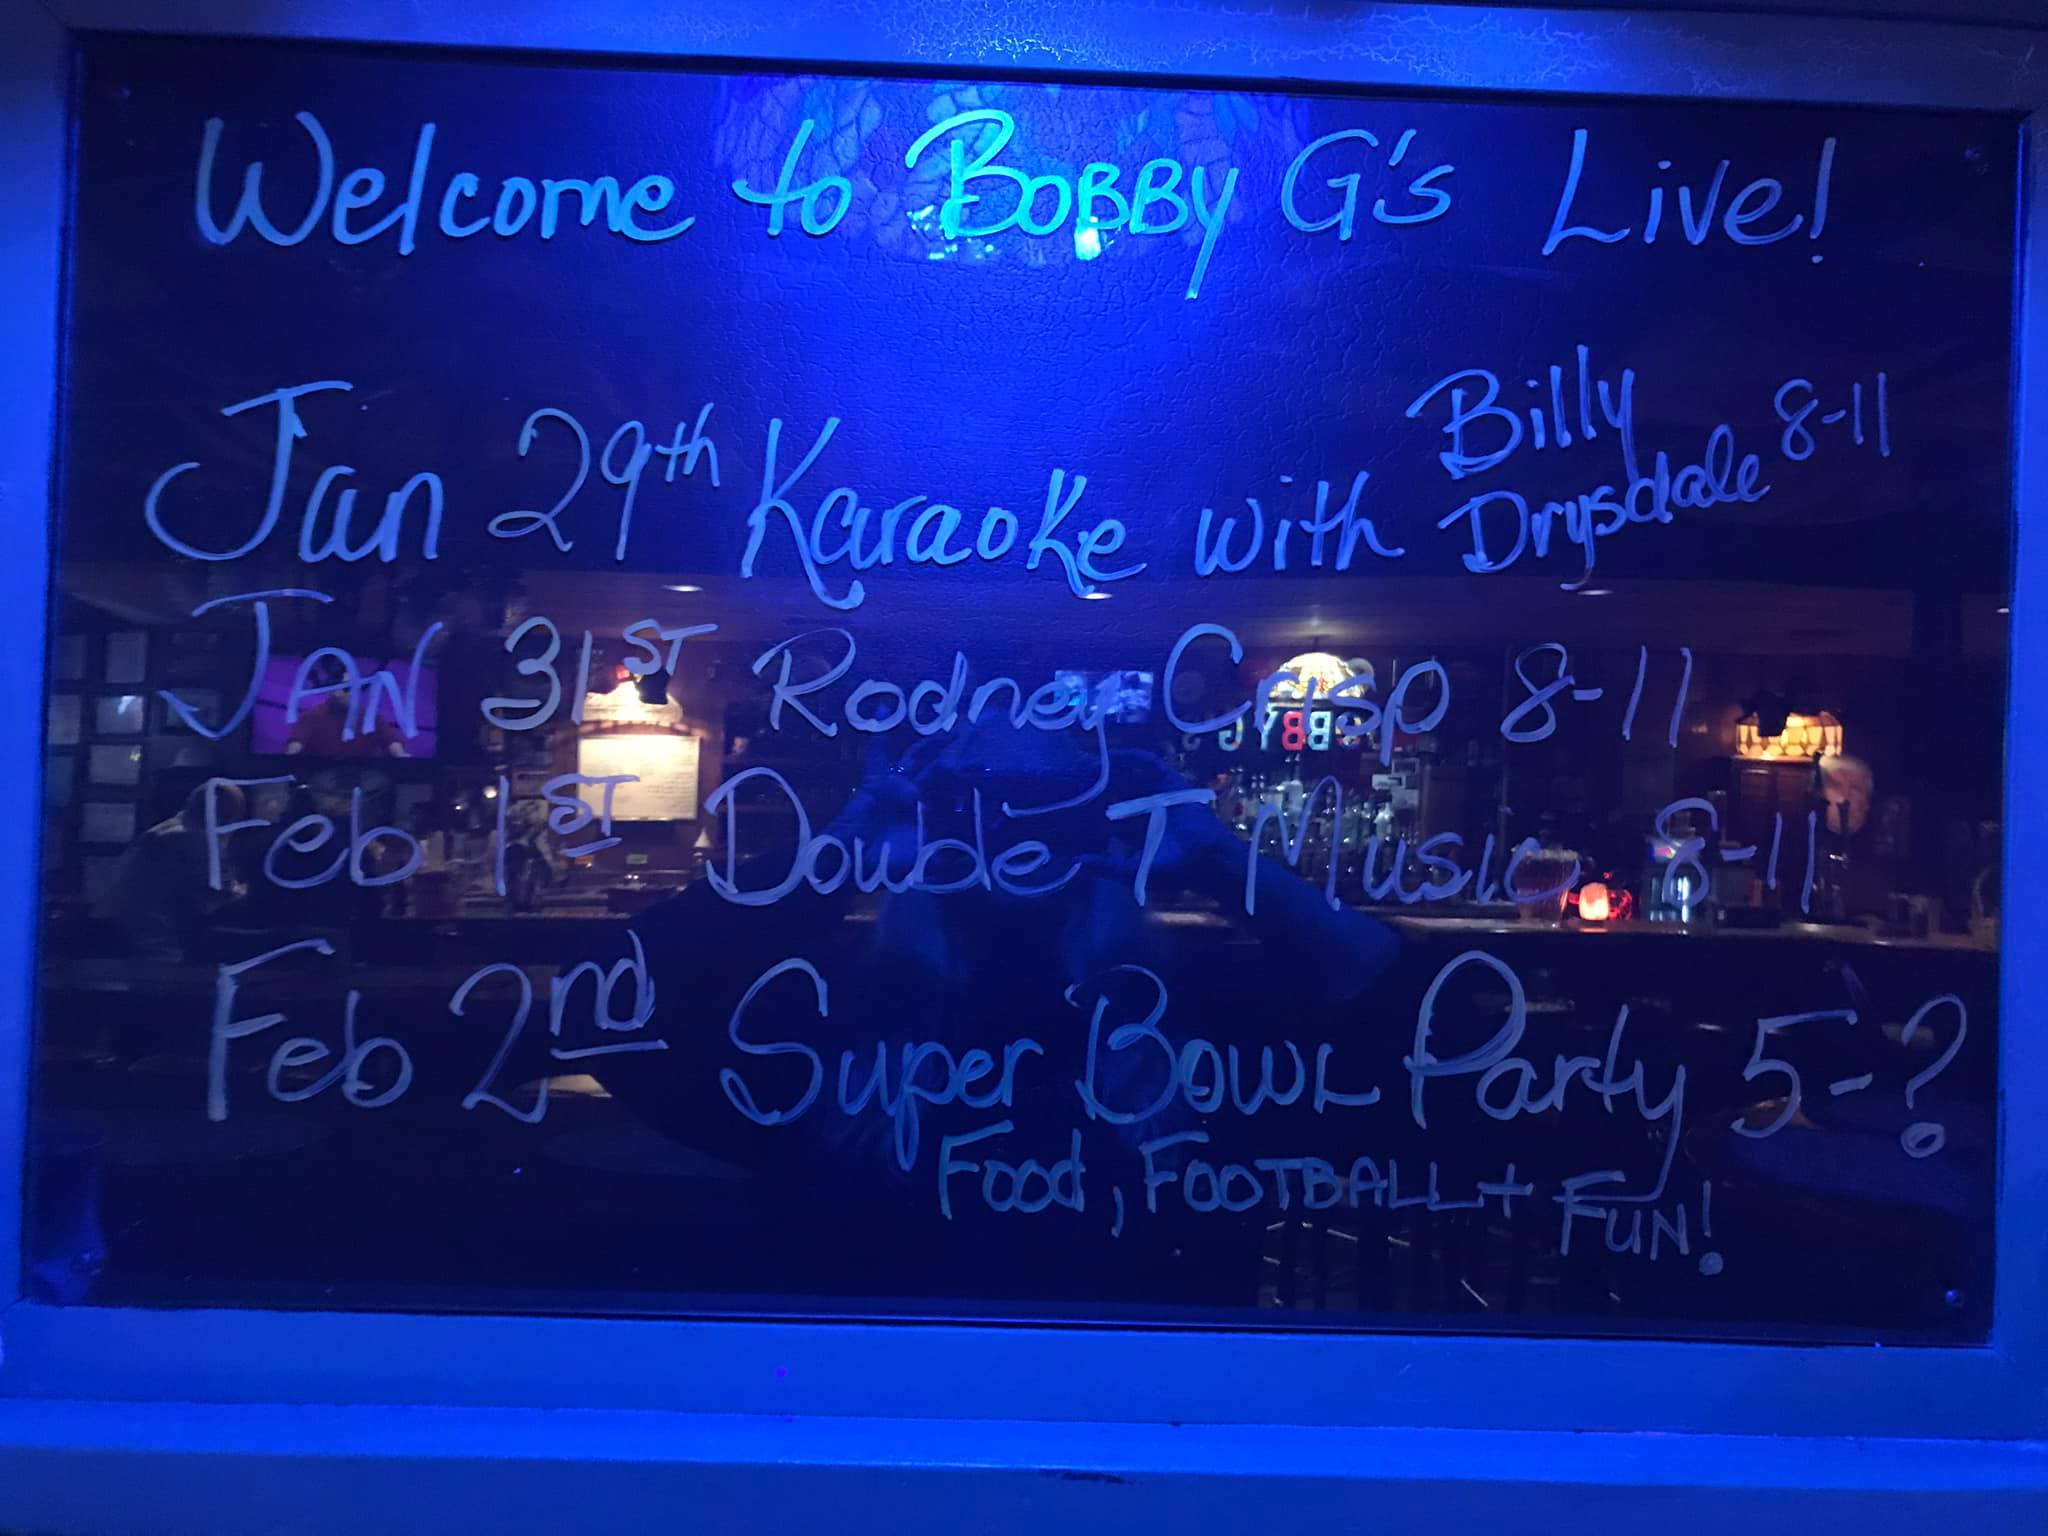 Welcome to BOBBY G's Live!
Jan 29th Karaoke with Billy Drysdale 8-11
JAN 31ST Rodney Crisp 8-11
Feb 1ST Double T Music 8-11
Feb 2nd Super BOWL Party 5-?
Food, FOOTBALL + FUN!